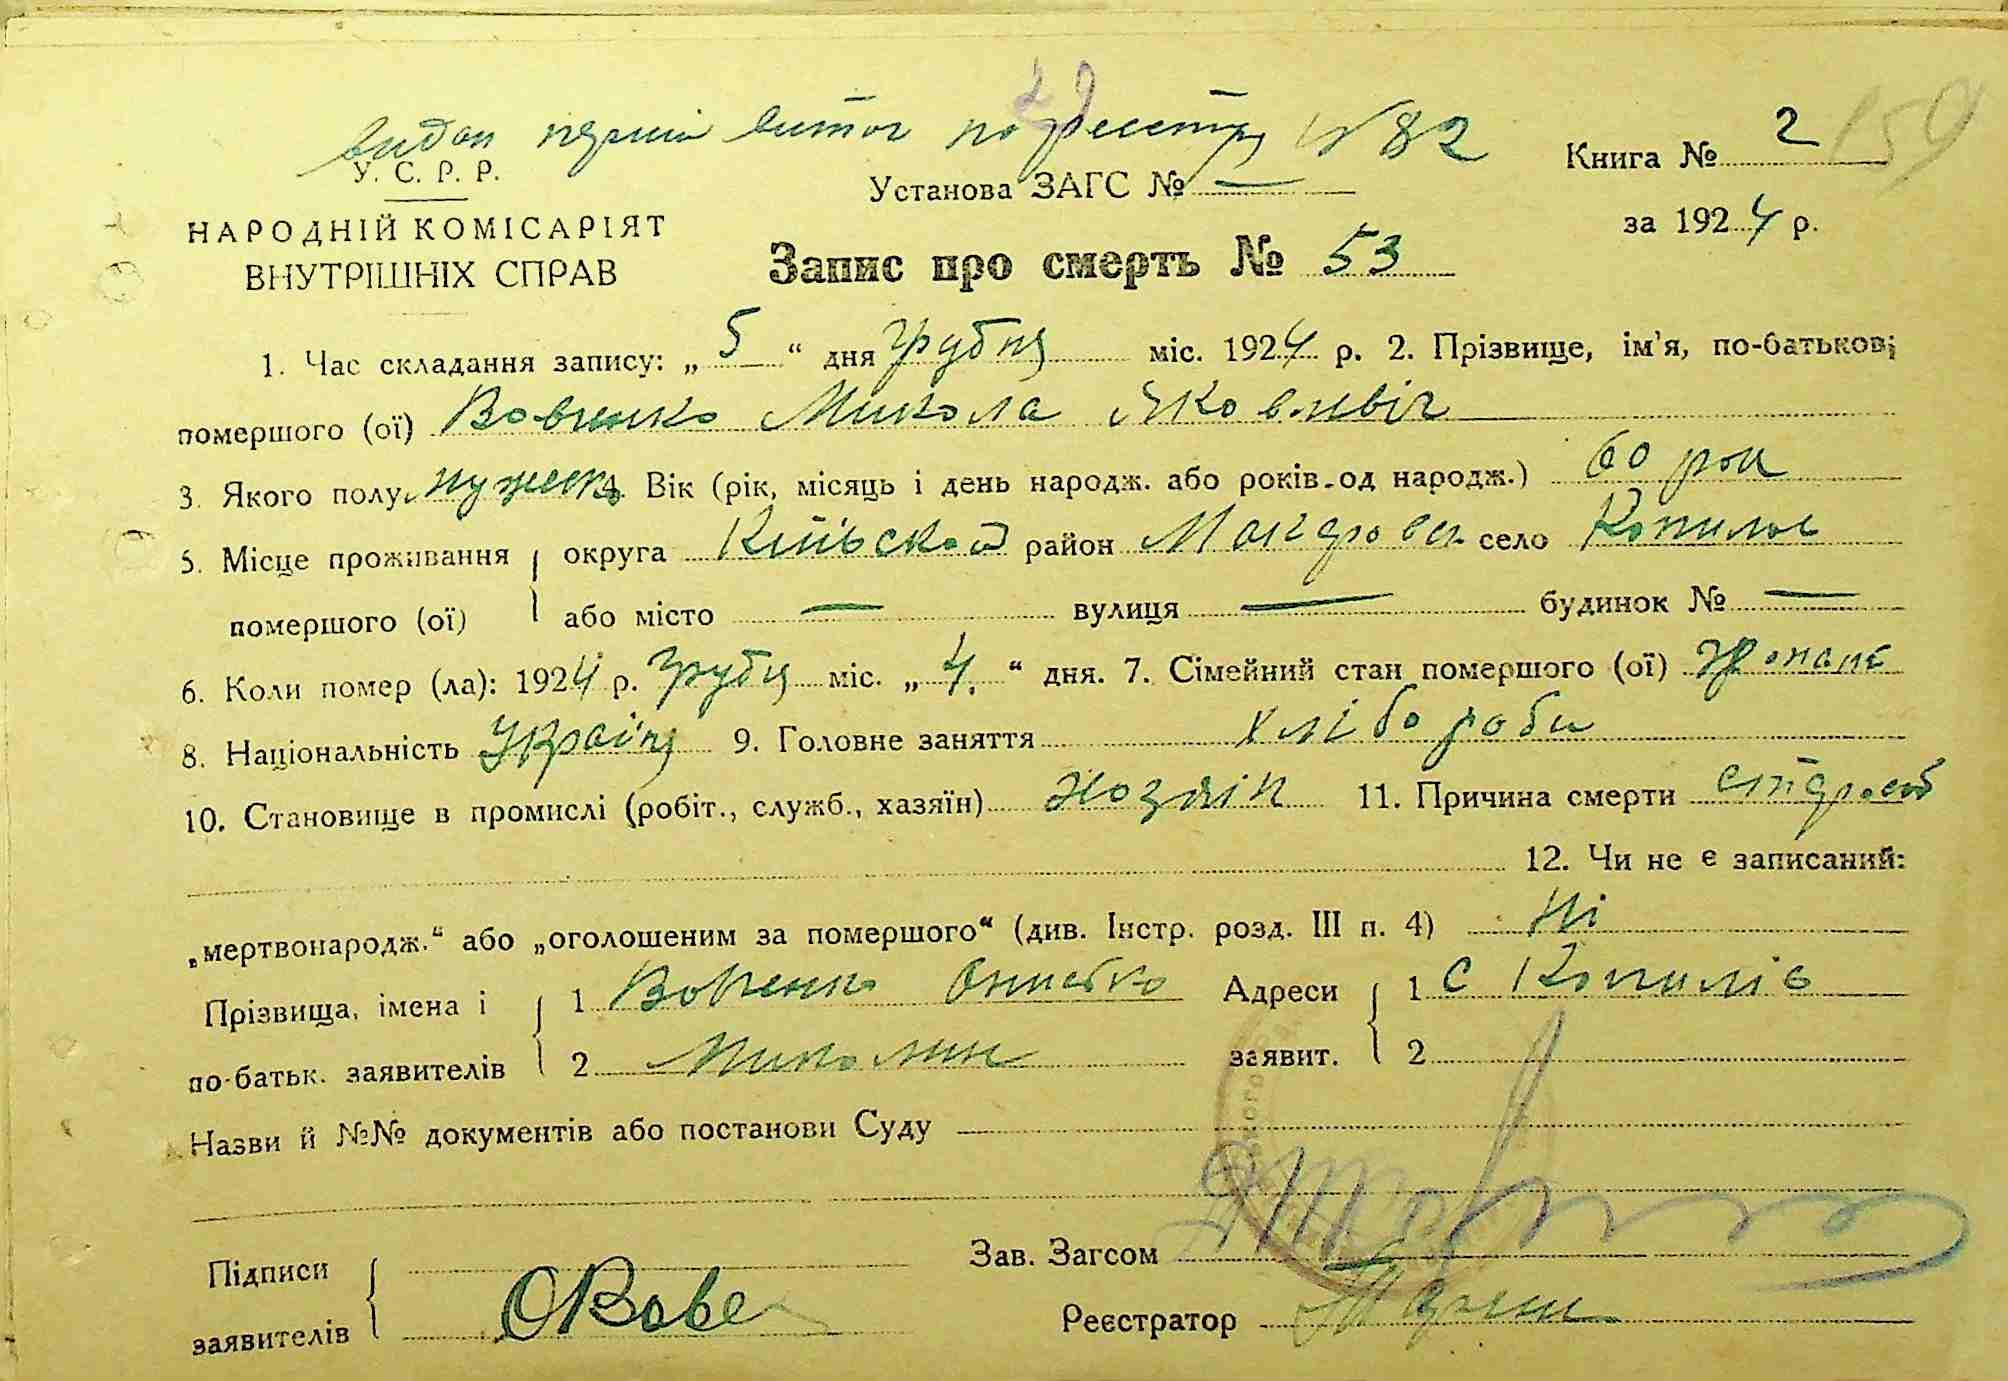 29
видан перший витог по реестру N 82
У. С. Р. Р.
Установа ЗАГС № —
Книга № 2
159
НАРОДНІЙ КОМІСАРІЯТ
ВНУТРІШНІХ СПРАВ
за 1924 р.
Запис про смерть № 53
1. Час складання запису: „ 5 “ дня Грудня міс. 1924 р. 2. Прізвище, ім’я, по-батькові
помершого (ої) Вовченко Микола Яковлевіч
3. Якого полу мужеск. 4. Вік (рік, місяць і день народж. або років од народж.) 60 рок
5. Місце проживання округа Київской район Макаровск село Копилов
помершого (ої) або місто — вулиця — будинок № —
6. Коли помер (ла): 1924 р. Грудня міс. „ 4. “ дня. 7. Сімейний стан помершого (ої)
8. Національність Україн 9. Головне заняття хліборобы
10. Становище в промислі (робіт., служб., хазяїн) Хозяїн 11. Причина смерти старость
12. Чи не є записаний:
„мертвонародж.“ або „оголошеним за помершого“ (див. Інстр. розд. III п. 4) Ні
Прізвища, імена і 1 Вовченко Адреси 1 с Копилів
по-батьк. заявителів 2 Миколин заявит. 2
Назви й №№ документів або постанови Суду
Підписи
Зав. Загсом
заявителів ОВовч
Реєстратор